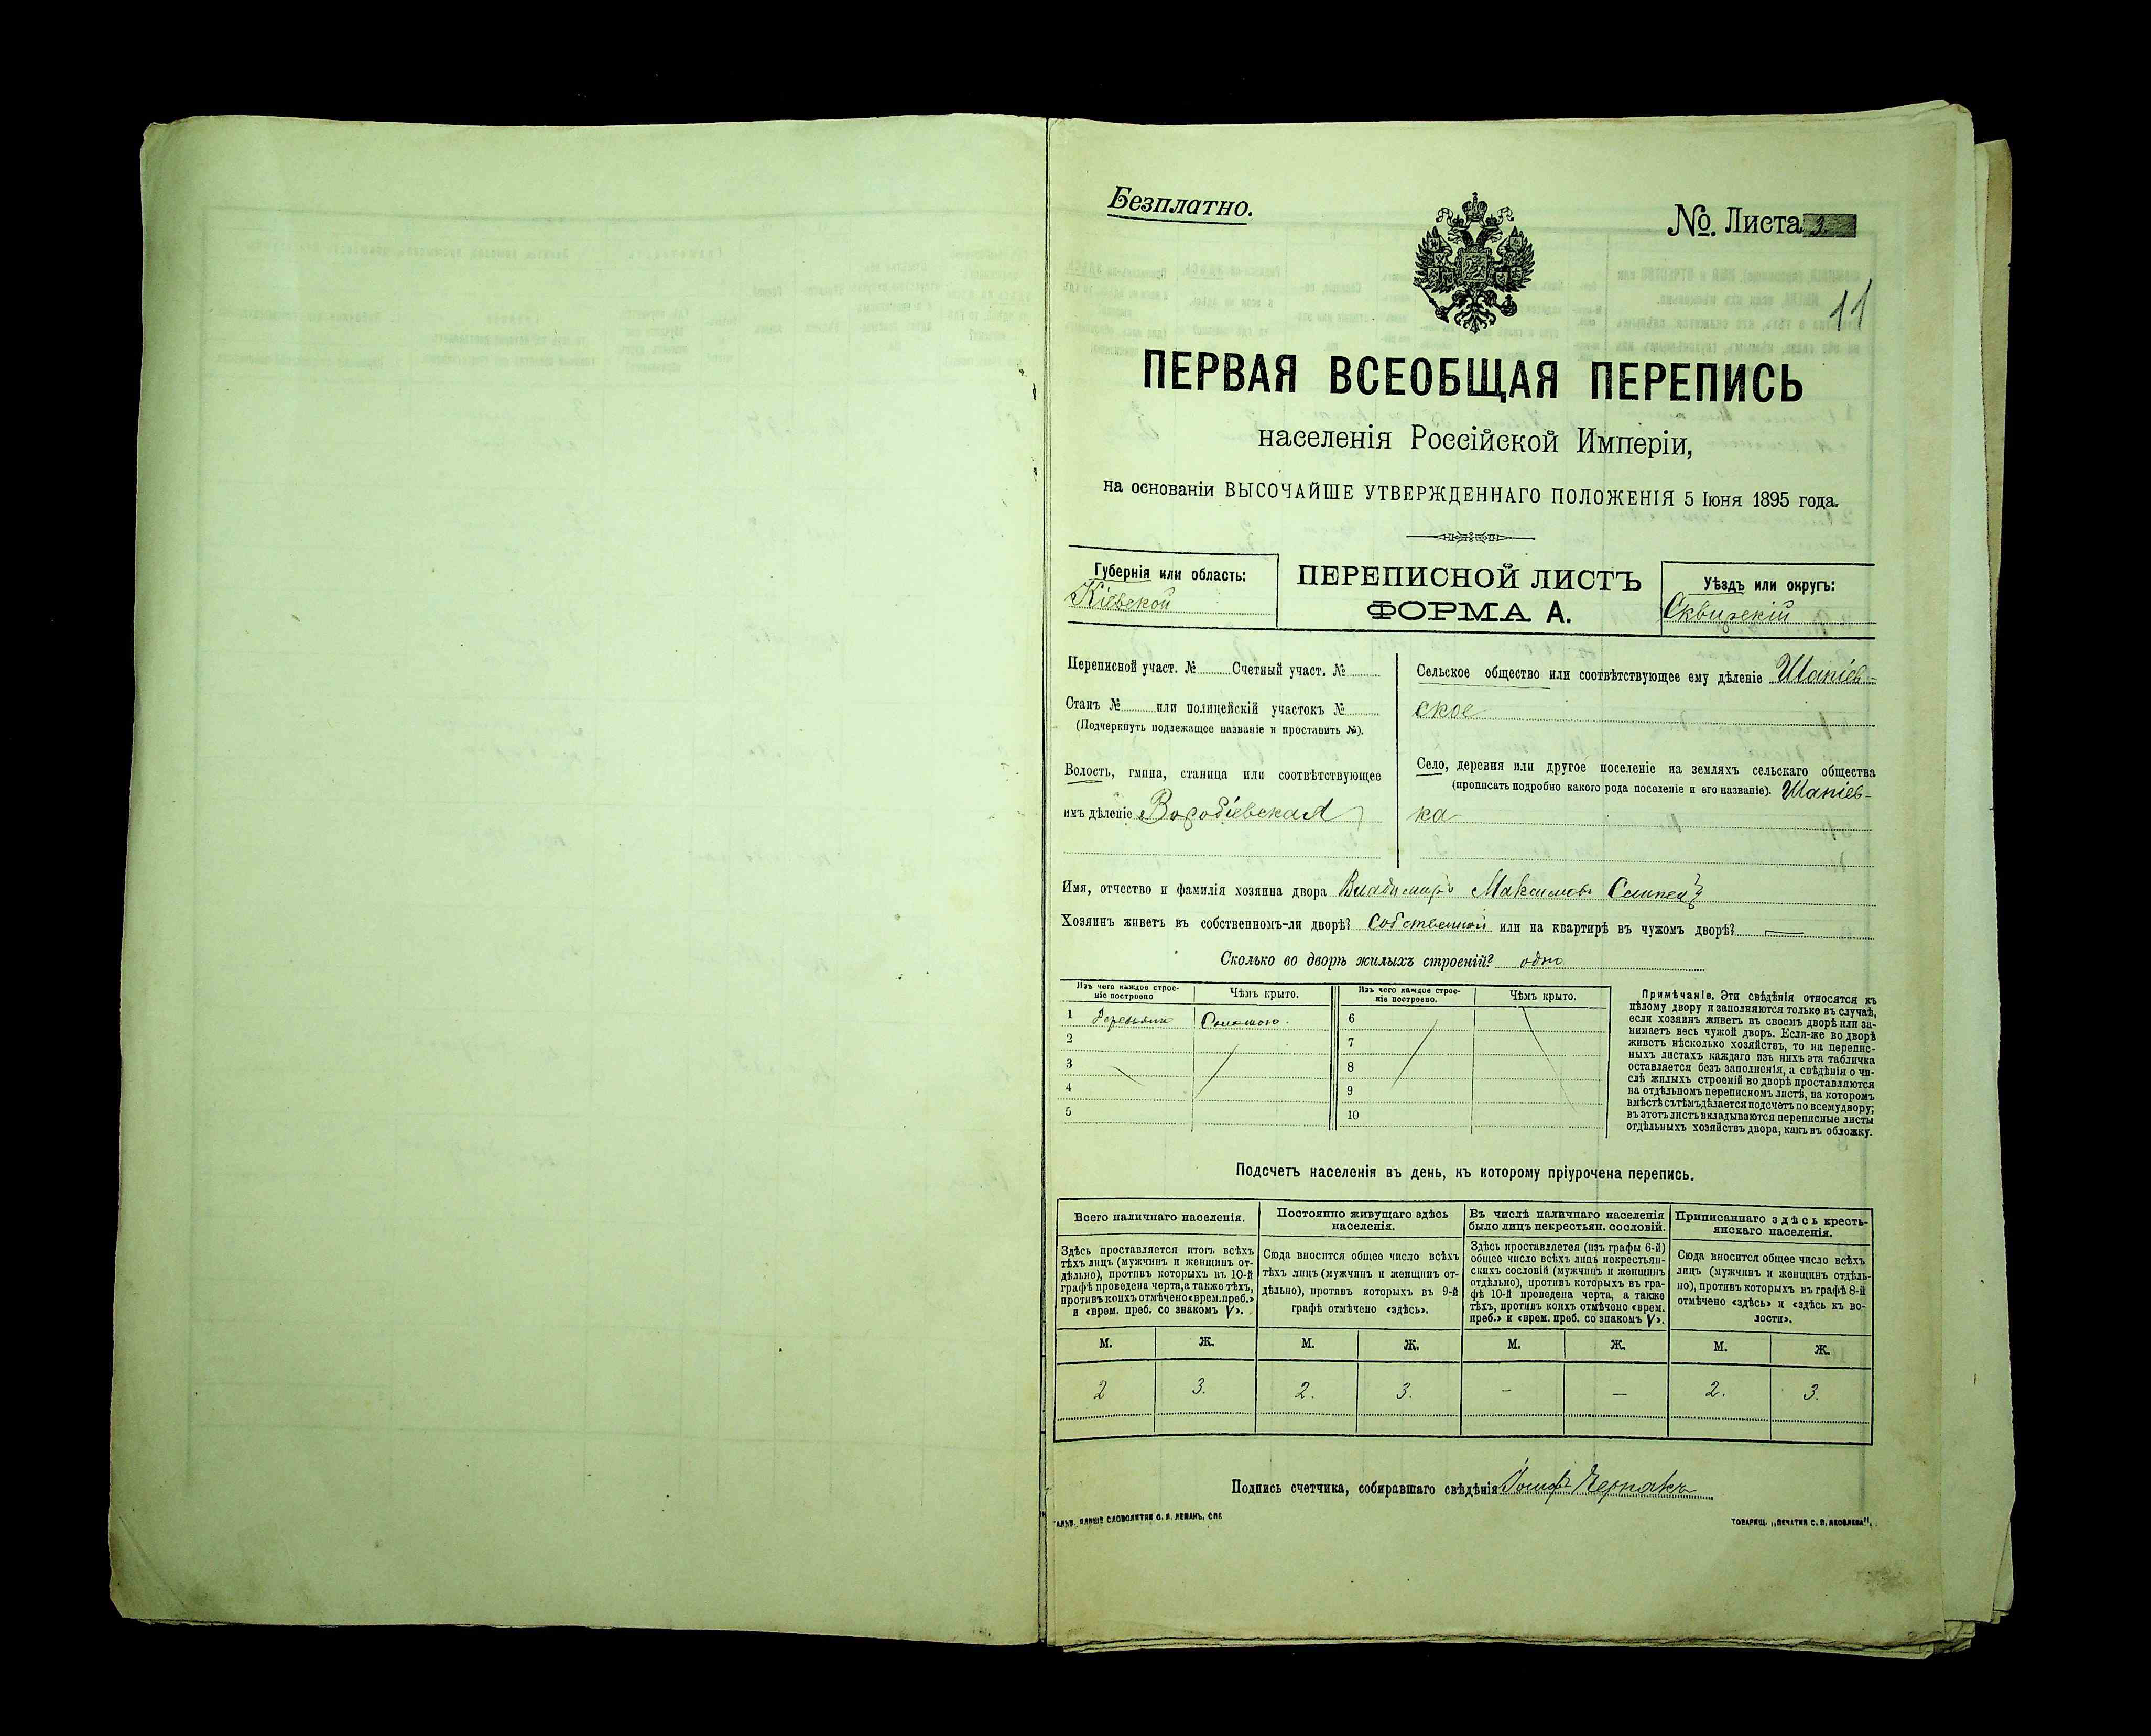 Безплатно.
№. Листа 3.
11
ПЕРВАЯ ВСЕОБЩАЯ ПЕРЕПИСЬ
населенія Россійской Имперіи,
на основаніи ВЫСОЧАЙШЕ УТВЕРЖДЕННАГО ПОЛОЖЕНІЯ 5 Іюня 1895 года.
Губернія или область:
Кіевской
ПЕРЕПИСНОЙ ЛИСТЪ
ФОРМА А.
Уѣздъ или округъ:
Сквирскій
Переписной участ. № Счетный участ. №
Станъ № или полицейскій участокъ №
(Подчеркнуть подлежащее названіе и проставить №).
Волость, гмина, станица или соотвѣтствующее
имъ дѣленіе Воробіевская
Сельское общество или соотвѣтствующее ему дѣленіе Шапіев-
ское
Село, деревня или другое поселеніе на земляхъ сельскаго общества
(прописать подробно какого рода поселеніе и его названіе). Шапіев-
ка
Имя, отчество и фамилія хозяина двора Владимиръ Максимовъ
Хозяинъ живетъ въ собственномъ-ли дворѣ? Собственной или на квартирѣ въ чужомъ дворѣ? —
Сколько во дворѣ жилыхъ строеній? одно
Изъ чего каждое строе-
ніе построено
Чѣмъ крыто.
Изъ чего каждое строе-
ніе построено.
Чѣмъ крыто.
1 Соломою.
2
3
4
5
6
7
8
9
10
Примѣчаніе. Эти свѣдѣнія относятся къ
цѣлому двору и заполняются только въ случаѣ,
если хозяинъ живетъ въ своемъ дворѣ или за-
нимаетъ весь чужой дворъ. Если-же во дворѣ
живетъ нѣсколько хозяйствъ, то на перепис-
ныхъ листахъ каждаго изъ нихъ эта табличка
оставляется безъ заполненія, а свѣдѣнія о чи-
слѣ жилыхъ строеній во дворѣ проставляются
на отдѣльномъ переписномъ листѣ, на которомъ
вмѣстѣ съ тѣмъ дѣлается подсчетъ по всему двору;
въ этотъ листъ вкладываются переписные листы
отдѣльныхъ хозяйствъ двора, какъ въ обложку.
Подсчетъ населенія въ день, къ которому пріурочена перепись.
Всего наличнаго населенія.
Здѣсь проставляется итогъ всѣхъ
тѣхъ лицъ (мужчинъ и женщинъ от-
дѣльно), противъ которыхъ въ 10-й
графѣ проведена черта, а также тѣхъ,
противъ коихъ отмѣчено «врем. преб.»
и «врем. преб. со знакомъ V».
Постоянно живущаго здѣсь
населенія.
Сюда вносится общее число всѣхъ
тѣхъ лицъ (мужчинъ и женщинъ от-
дѣльно), противъ которыхъ въ 9-й
графѣ отмѣчено «здѣсь».
Въ числѣ наличнаго населенія
было лицъ некрестьян. сословій.
Здѣсь проставляется (изъ графы 6-й)
общее число всѣхъ лицъ некрестьян-
скихъ сословій (мужчинъ и женщинъ
отдѣльно), противъ которыхъ въ гра-
фѣ 10-й проведена черта, а также
тѣхъ, противъ коихъ отмѣчено «врем.
преб.» и «врем. преб. со знакомъ V».
Приписаннаго здѣсь кресть-
янскаго населенія.
Сюда вносится общее число всѣхъ
лицъ (мужчинъ и женщинъ отдѣль-
но), противъ которыхъ въ графѣ 8-й
отмѣчено «здѣсь» и «здѣсь къ во-
лости».
М. Ж. М. Ж. М. Ж. М. Ж.
2 3. 2. 3. – — 2. 3.
Подпись счетчика, собиравшаго свѣдѣнія
СЛОВОЛИТНИ О. И. ЛЕМАНЪ, СПБ
ТОВАРИЩ. „ПЕЧАТНЯ С. П. ЯКОВЛЕВА“,